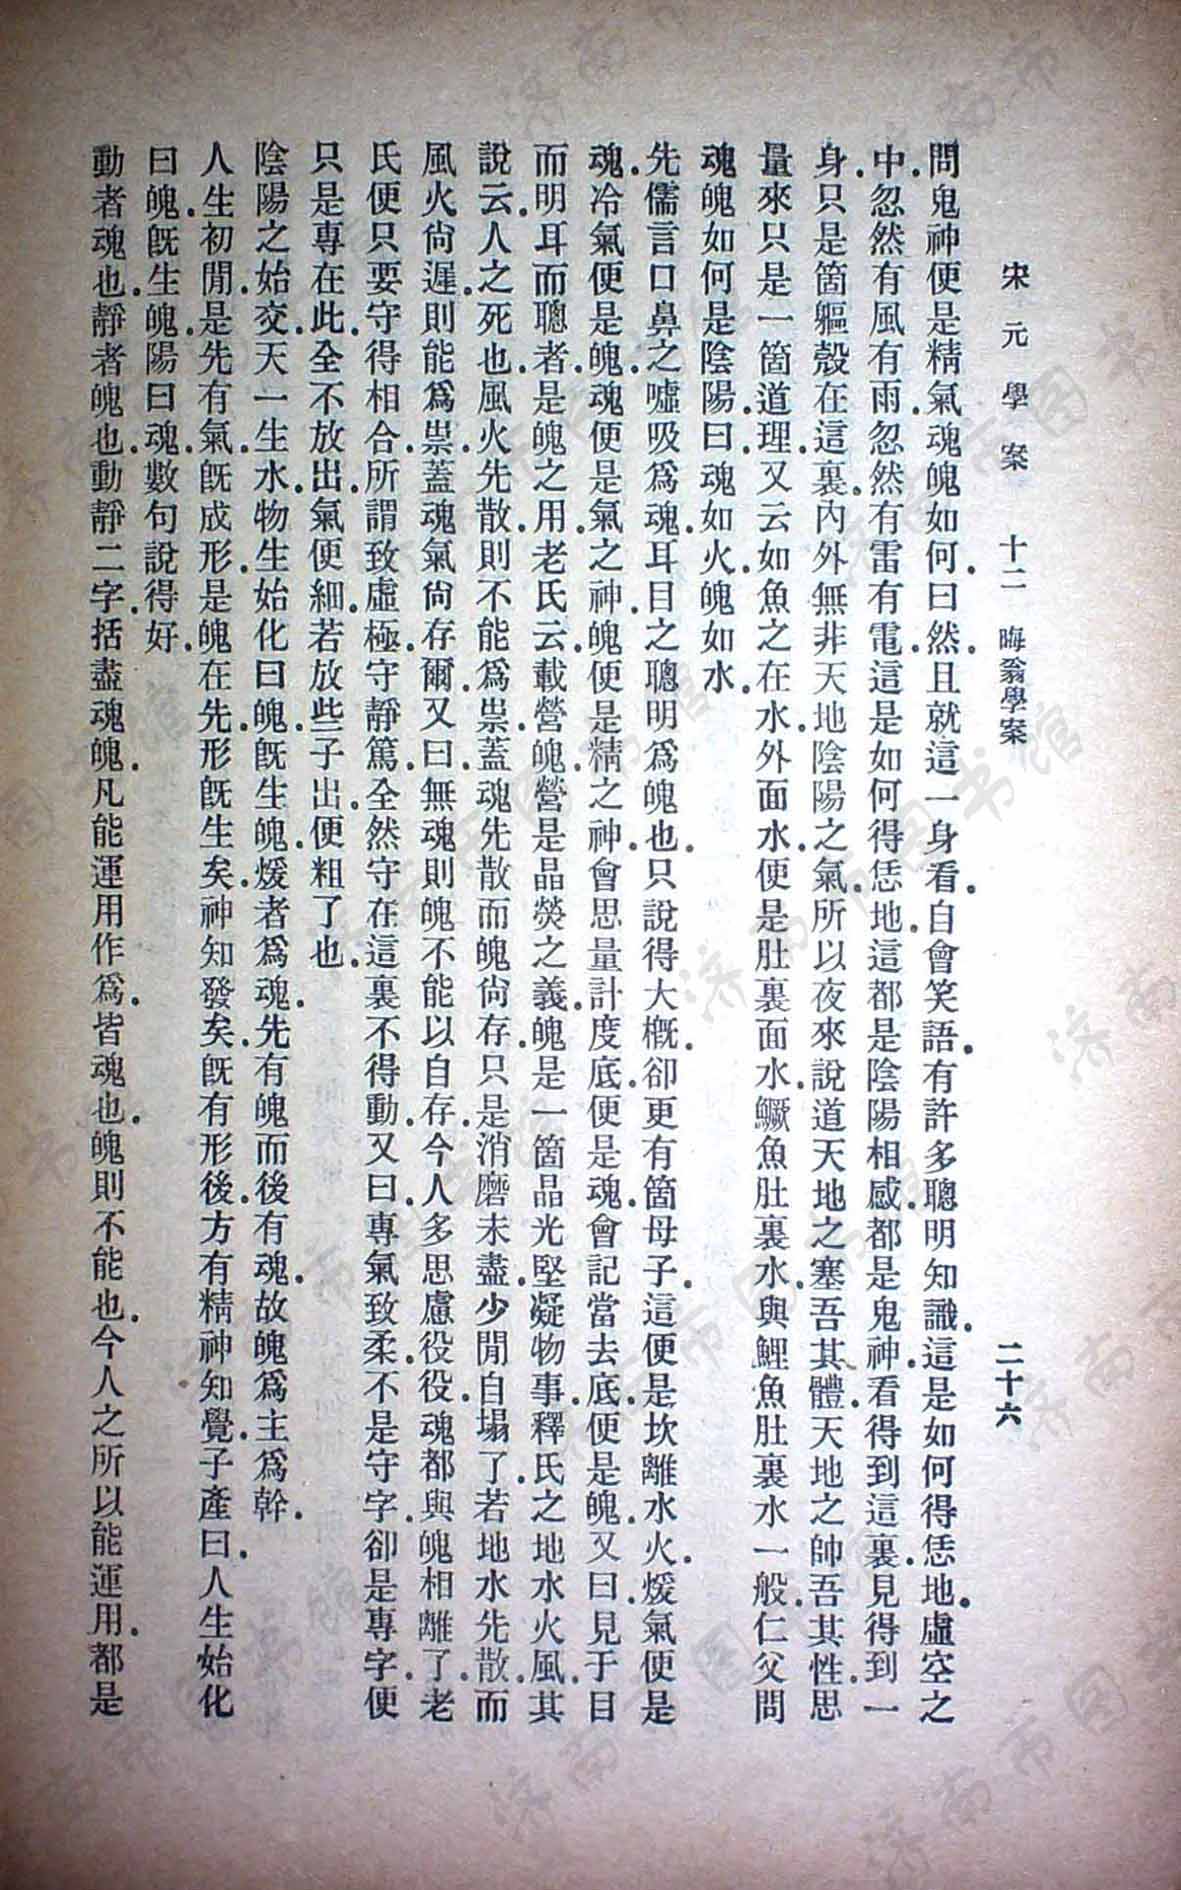 宋元學案 十二 晦翁學案 二十六
問鬼神便是精氣魂魄如何曰然且就這一身看自會笑語有許多聰明知識這是如何得恁地虛空之
中忽然有風有雨忽然有雷有電這是如何得恁地這都是陰陽相感都是鬼神看得到這裏見得到一
身只是箇軀殼在這裏內外無非天地陰陽之氣所以夜來說道天地之塞吾其體天地之帥吾其性思
量來只是一箇道理又云如魚之在水外面水便是肚裏面水鱖魚肚裏水與鯉魚肚裏水一般仁父問
魂魄如何是陰陽曰魂如火魄如水
先儒言口鼻之噓吸為魂耳目之聰明為魄也只說得大概卻更有箇母子這便是坎離水火煖氣便是
魂冷氣便是魄魂便是氣之神魄便是精之神會思量計度底便是魂會記當去底便是魄又曰見于目
而明耳而聰者是魄之用老氏云載營魄營是晶熒之義魄是一箇晶光堅凝物事釋氏之地水火風其
說云人之死也風火先散則不能為祟蓋魂先散而魄尙存只是消磨未盡少閒自塌了若地水先散而
風火尙遲則能為祟蓋魂氣尙存爾又曰無魂則魄不能以自存今人多思慮役役魂都與魄相離了老
氏便只要守得相合所謂致虛極守靜篤全然守在這裏不得動又曰專氣致柔不是守字卻是專字便
只是專在此全不放出氣便細若放些子出便粗了也
陰陽之始交天一生水物生始化曰魄旣生魄煖者為魂先有魄而後有魂故魄為主為幹
人生初閒是先有氣旣成形是魄在先形旣生矣神知發矣旣有形後方有精神知覺子產曰人生始化
曰魄旣生魄陽曰魂數句說得好
動者魂也靜者魄也動靜二字括盡魂魄凡能運用作為皆魂也魄則不能也今人之所以能運用都是